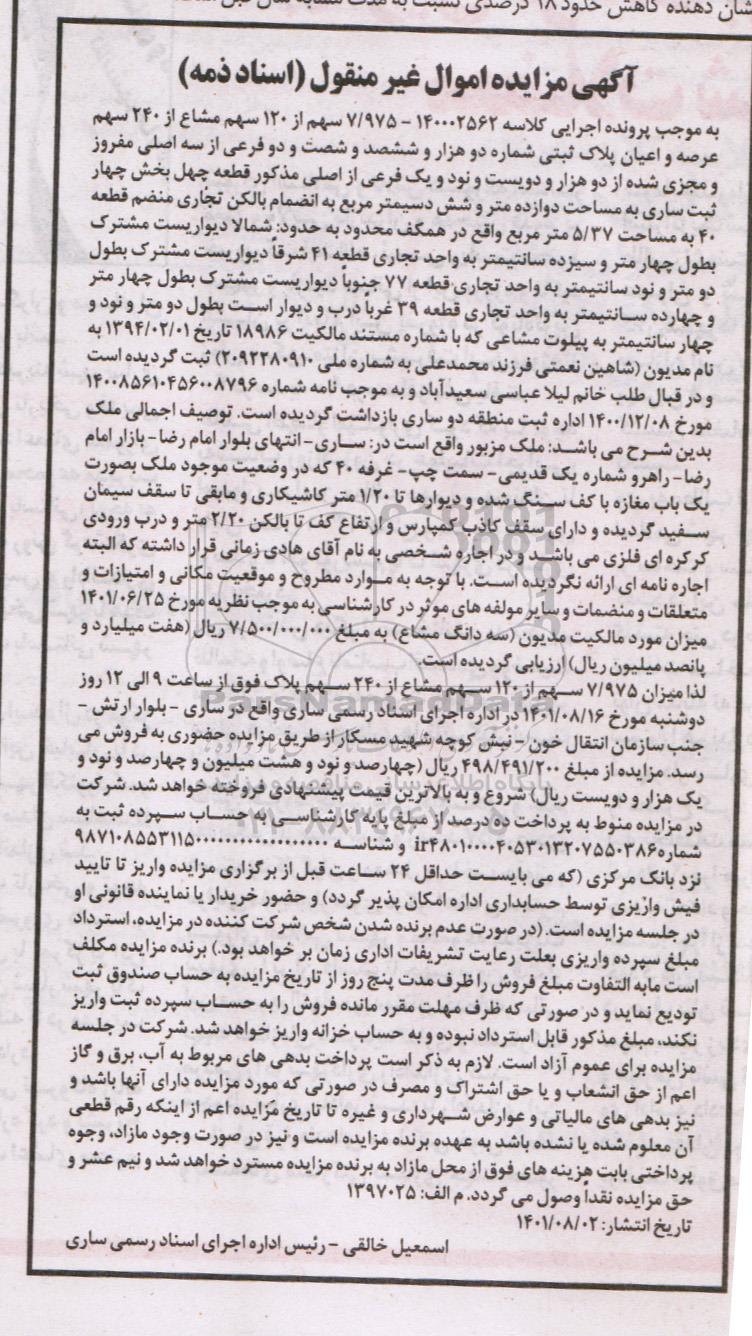 آگهی مزایده اموال غیر منقول (اسناد ذمه)
به موجب پرونده اجرایی کلاسه ۱۴۰۰۰۲۵۶۲ - ۷/۹۷۵ سهم از ۱۲۰ سهم مشاع از ۲۴۰ سهم
عرصه و اعیان پلاک ثبتی شماره دو هزار و ششصد و شصت و دو فرعی از سه اصلی مفروز
و مجزی شده از دو هزار و دویست و نود و یک فرعی از اصلی مذکور قطعه چهل بخش چهار
ثبت ساری به مساحت دوازده متر و شش دسیمتر مربع به انضمام بالکن تجاری منضم قطعه
۴۰ به مساحت ۵/۳۷ متر مربع واقع در همکف محدود به حدود: شمالا دیواریست مشترک
بطول چهار متر و سیزده سانتیمتر به واحد تجاری قطعه ۴۱ شرقاً دیواریست مشترک بطول
دو متر و نود سانتیمتر به واحد تجاری قطعه ۷۷ جنوباً دیواریست مشترک بطول چهار متر
و چهارده سانتیمتر به واحد تجاری قطعه ۳۹ غرباً درب و دیوار است بطول دو متر و نود و
چهار سانتیمتر به پیلوت مشاعی که با شماره مستند مالکیت ۱۸۹۸۶ تاریخ ۱۳۹۴/۰۲/۰۱ به
نام مدیون (شاهین نعمتی فرزند محمدعلی به شماره ملی ۲۰۹۲۲۸۰۹۱۰) ثبت گردیده است
و در قبال طلب خانم لیلا عباسی سعیدآباد و به موجب نامه شماره ۱۴۰۰۸۵۶۱۰۴۵۶۰۰۸۷۹۶
مورخ ۱۴۰۰/۱۲/۰۸ اداره ثبت منطقه دو ساری بازداشت گردیده است. توصیف اجمالی ملک
بدین شرح می باشد: ملک مزبور واقع است در: ساری- انتهای بلوار امام رضا - بازار امام
رضا- راهرو شماره یک قدیمی- سمت چپ- غرفه ۴۰ که در وضعیت موجود ملک بصورت
یک باب مغازه با کف سنگ شده و دیوارها تا ۱/۲۰ متر کاشیکاری و مابقی تا سقف سیمان
سفید گردیده و دارای سقف کاذب کمپارس و ارتفاع کف تا بالکن ۲/۲۰ متر و درب ورودی
کرکره ای فلزی می باشد و در اجاره شخصی به نام آقای هادی زمانی قرار داشته که البته
اجاره نامه ای ارائه نگردیده است. با توجه به موارد مطروح و موقعیت مکانی و امتیازات و
متعلقات و منضمات و سایر مولفه های موثر در کارشناسی به موجب نظریه مورخ ۱۴۰۱/۰۶/۲۵
میزان مورد مالکیت مدیون (سه دانگ مشاع) به مبلغ ۷/۵۰۰/۰۰۰/۰۰۰ ریال (هفت میلیارد و
پانصد میلیون ریال) ارزیابی گردیده است.
لذا میزان ۷/۹۷۵ سهم از ۱۲۰ سهم مشاع از ۲۴۰ سهم پلاک فوق از ساعت ۹ الی ۱۲ روز
دوشنبه مورخ ۱۴۰۱/۰۸/۱۶ در اداره اجرای اسناد رسمی ساری واقع در ساری - بلوار ارتش -
جنب سازمان انتقال خون - نبش کوچه شهید مسکار از طریق مزایده حضوری به فروش می
رسد. مزایده از مبلغ ۴۹۸/۴۹۱/۲۰۰ ریال (چهارصد و نود و هشت میلیون و چهارصد و نود و
یک هزار و دویست ریال) شروع و به بالاترین قیمت پیشنهادی فروخته خواهد شد. شرکت
در مزایده منوط به پرداخت ده درصد از مبلغ پایه کارشناسی به حساب سپرده ثبت به
شماره ir۴۸۰۱۰۰۰۰۴۰۵۳۰۱۳۲۰۷۵۵۰۳۸۶ و شناسه
نزد بانک مرکزی (که می بایست حداقل ۲۴ ساعت قبل از برگزاری مزایده واریز تا تایید
فیش واریزی توسط حسابداری اداره امکان پذیر گردد) و حضور خریدار یا نماینده قانونی او
در جلسه مزایده است. (در صورت عدم برنده شدن شخص شرکت کننده در مزایده، استرداد
مبلغ سپرده واریزی بعلت رعایت تشریفات اداری زمان بر خواهد بود.) برنده مزایده مکلف
است مابه التفاوت مبلغ فروش را ظرف مدت پنج روز از تاریخ مزایده به حساب صندوق ثبت
تودیع نماید و در صورتی که ظرف مهلت مقرر مانده فروش را به حساب سپرده ثبت واریز
نکند، مبلغ مذکور قابل استرداد نبوده و به حساب خزانه واریز خواهد شد. شرکت در جلسه
مزایده برای عموم آزاد است. لازم به ذکر است پرداخت بدهی های مربوط به آب، برق و گاز
اعم از حق انشعاب و یا حق اشتراک و مصرف در صورتی که مورد مزایده دارای آنها باشد و
نیز بدهی های مالیاتی و عوارض شهرداری و غیره تا تاریخ مزایده اعم از اینکه رقم قطعی
آن معلوم شده یا نشده باشد به عهده برنده مزایده است و نیز در صورت وجود مازاد، وجوه
پرداختی بابت هزینه های فوق از محل مازاد به برنده مزایده مسترد خواهد شد و نیم عشر و
حق مزایده نقداً وصول می گردد. م الف: ۱۳۹۷۰۲۵
تاریخ انتشار: ۱۴۰۱/۰۸/۰۲
اسمعیل خالقی - رئیس اداره اجرای اسناد رسمی ساری
ParsNamadData